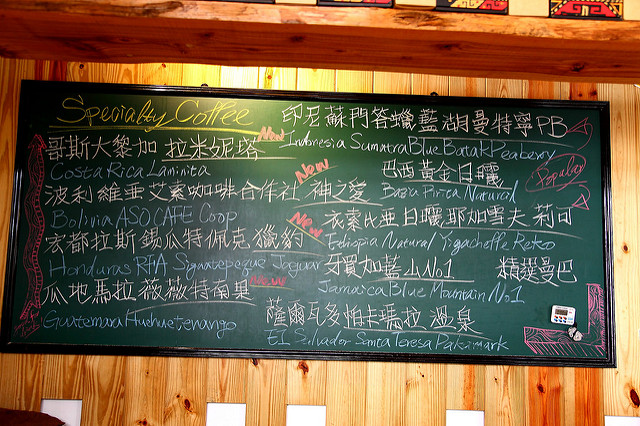 Specialty Coffee
哥斯大黎加 拉米妮塔 New
Costa Rica Laminita
波利維亞艾索咖啡合作社
Bolivia ASO CAFE Coop
宏都拉斯錫瓜特佩克獵豹
Honduras RHA Siguatepeque Jaguar
瓜地馬拉薇薇特南果 New
Guatemara Huehuetenango
印尼蘇門答蠟藍湖曼特寧PB
Indonesia Sumatra Blue Batak Peaberry
New 神之愛 巴西黃金日曬
Popular
New 衣索比亞日曬耶加雪夫 莉可
Ethiopia Natural Yigacheffe Reko
牙買加藍山No1 精選曼巴
Jamaica Blue Mountain No.1
薩爾瓦多帕卡瑪拉溫泉
El Salvador Santa Teresa Pakamark